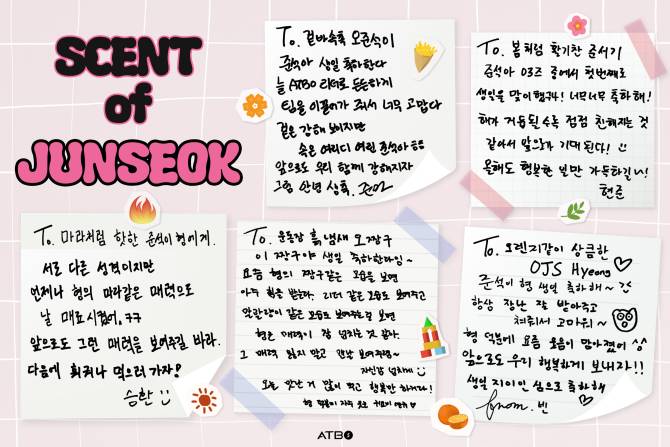 SCENT
of
JUNSEOK
To. 겉바속촉 오준석이
준석아 생일 축하한다
늘 ATBO 리더로 든든하게
팀을 이끌어가 줘서 너무 고맙다
겉은 강해 보이지만
속은 여리디 여린 준석아
앞으로 우리 함께 강해지자
그럼 안녕 샹톡.
To. 봄처럼 활기찬 준서기
준석아 03즈 중에서 첫번째로
생일을 맞이했구나! 너무너무 축하해!
해가 거듭될수록 점점 친해지는 것
같아서 앞으로가 기대된다!
올해도 행복한 일만 가득하길~!
현준
To. 마라처럼 핫한 준석이형에게.
서로 다른 성격이지만
언제나 형의 마라같은 매력으로
날 매료시켰어. ㅋㅋ
앞으로도 그런 매력을 보여주길 바라.
다음에 훠궈나 먹으러 가자!
승환
To. 운동장 흙냄새 오짱구
이 짱구야 생일 축하한다잉~
요즘 형의 짱구같은 모습을 보면
아주 힘을 받는다. 리더 같은 모습도 보여주고
막내같이 같은 모습도 보여주는걸 보면
형은 매력이 참 넘치는 것 같아.
그 매력 잃지 말고 맨날 보여주셈~
자신감 넘치게
오늘 맛난 거 많이 먹고 행복만 하거라!
To. 오렌지같이 상큼한
OJS Hyeong
준석이 형 생일 축하해~
항상 장난 잘 받아주고
챙겨줘서 고마워~
형 덕분에 요즘 웃음이 많아졌어 ^^
앞으로도 우리 행복하게 보내자!!
생일 지이인심으로 축하해
from. 빈
ATBO